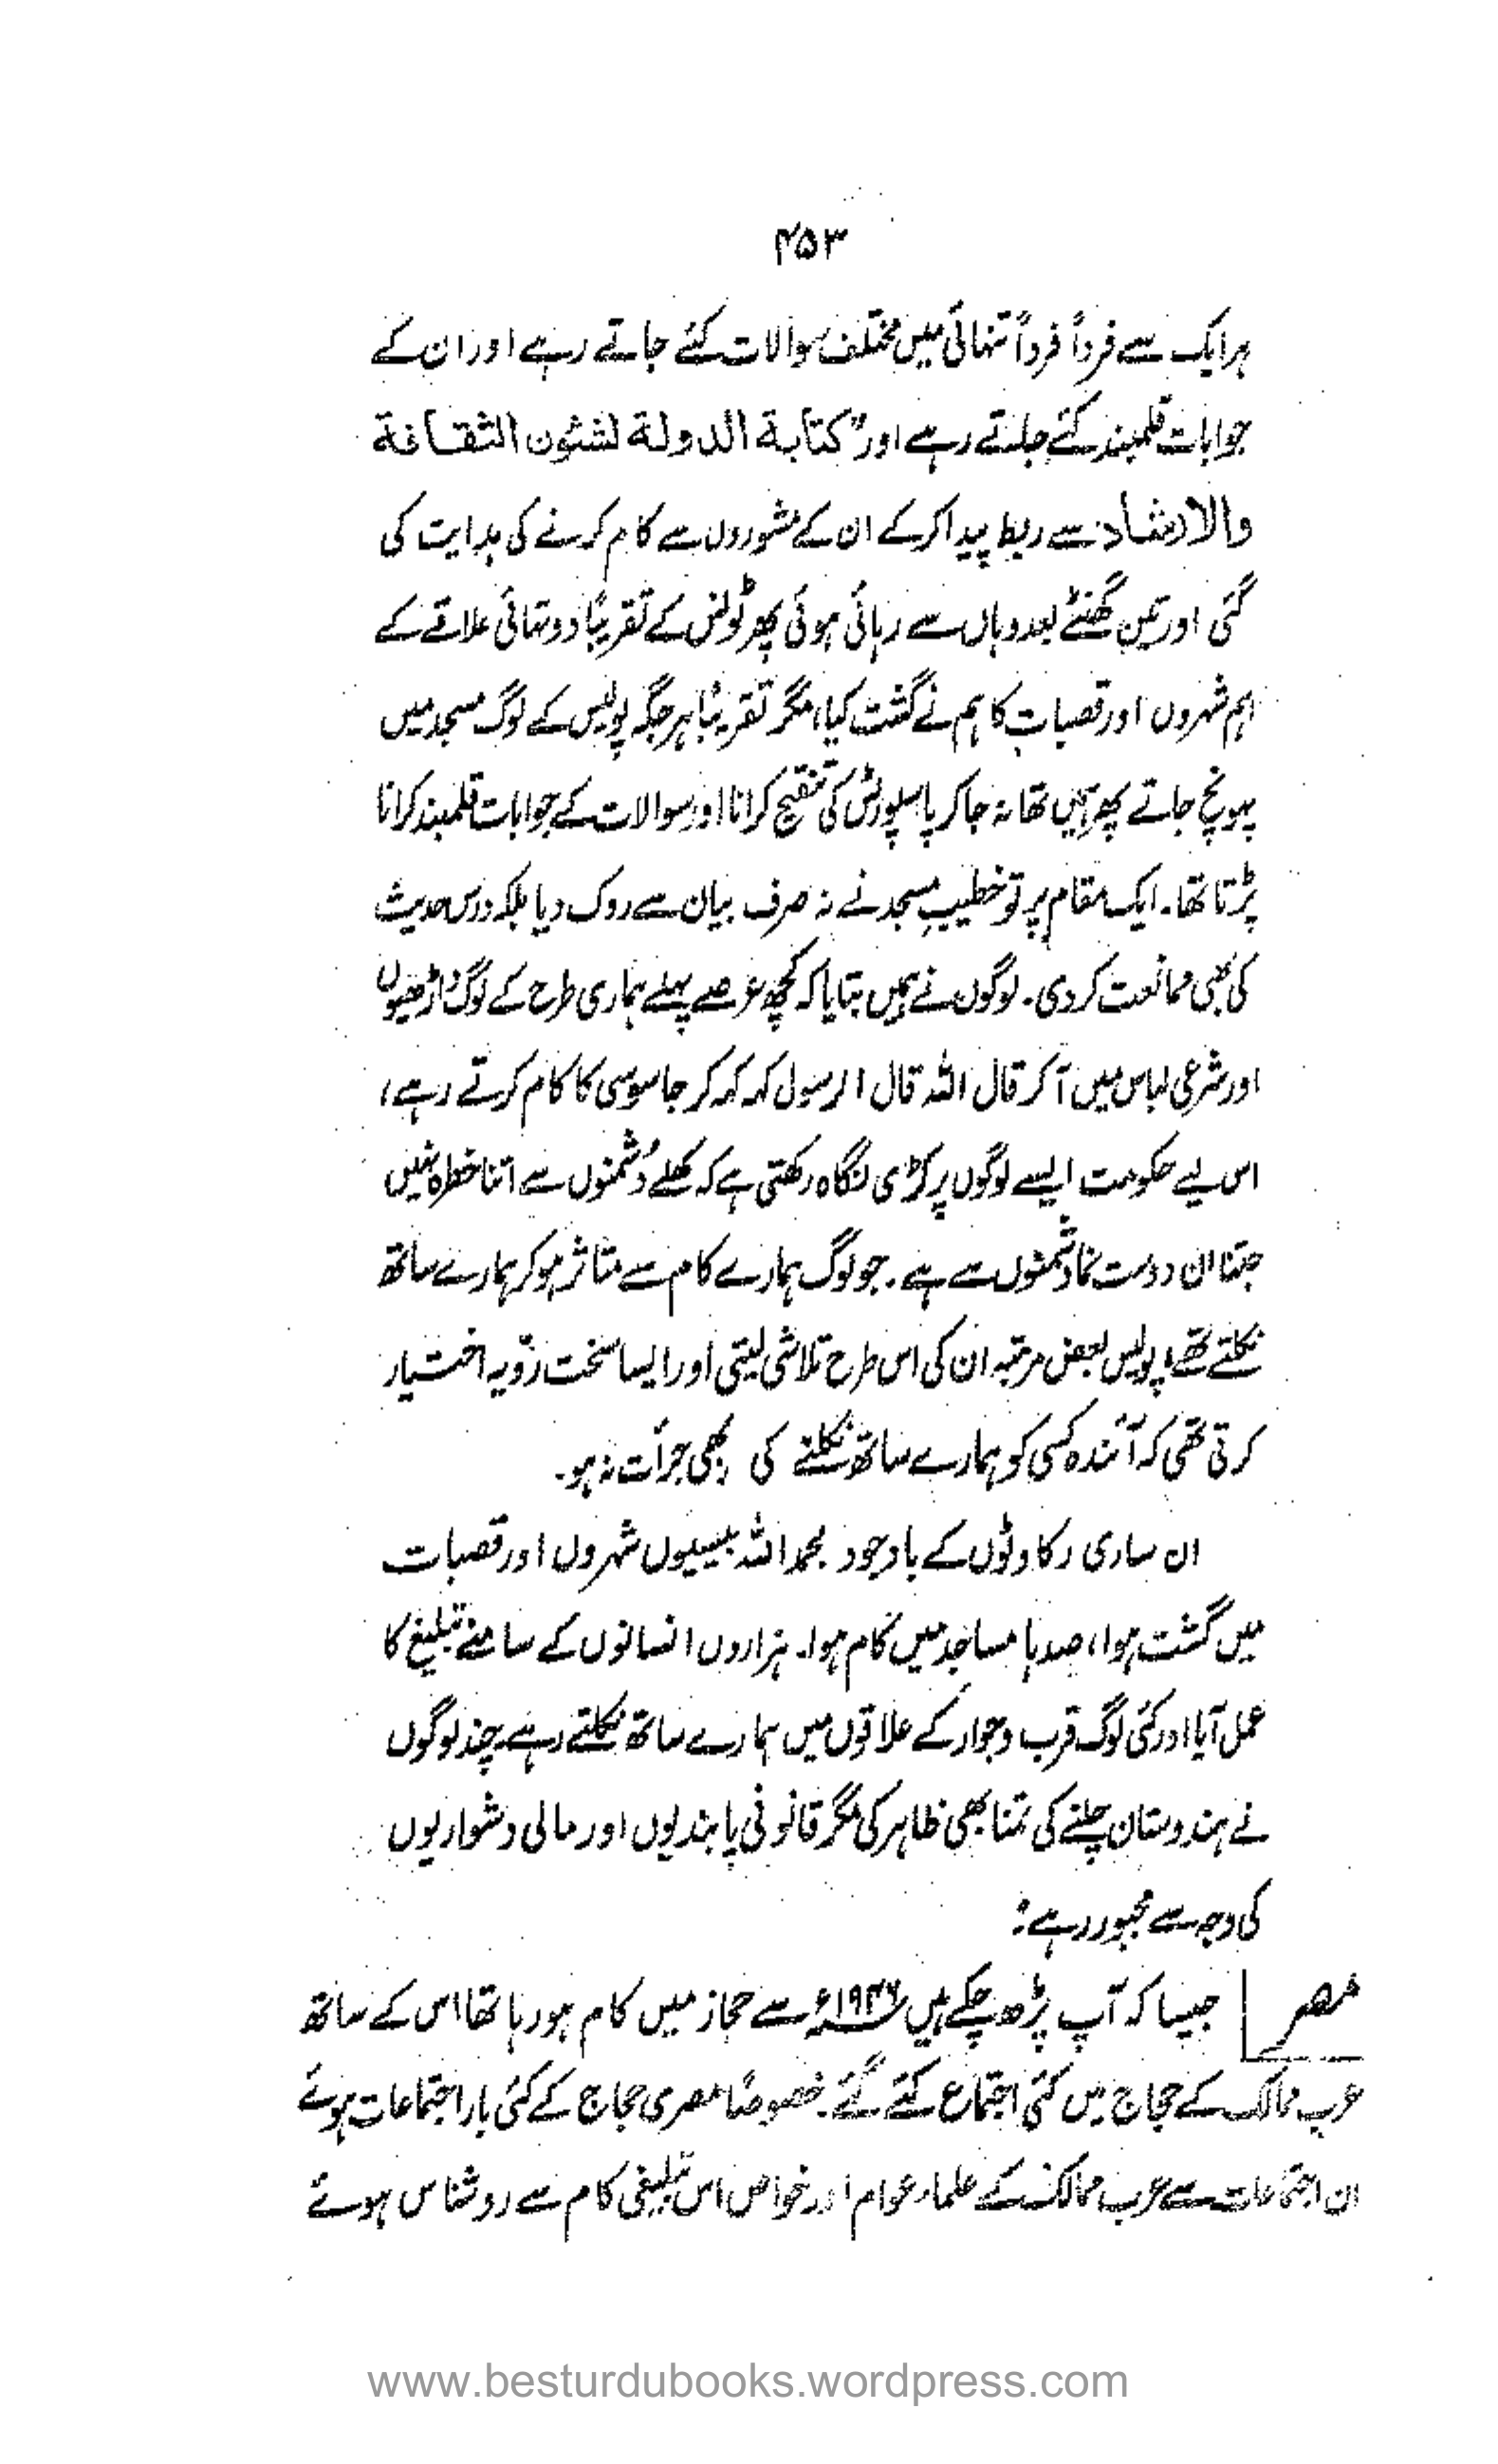 ۴۵۳
ہر ایک سے فرداً فرداً تنہائی میں مختلف سوالات کئے جاتے رہے اور ان کے
جوابات قلمبند کئے جاتے رہے اور "كتابة الدولة لشئون الثقافة
والارشاد سے ربط پیدا کر کے ان کے مشوروں سے کام کرنے کی ہدایت کی
گئی اور تین گھنٹے بعد وہاں سے رہائی ہوئی پھر ٹونس کے تقریباً دو تہائی علاقے کے
اہم شہروں اور قصبات کا ہم نے گشت کیا، مگر تقریباً ہر جگہ پولیس کے لوگ مسجد میں
پہونچ جاتے پھر ہمیں تھانہ جا کر پاسپورٹس کی تنقیح کرانا اور سوالات کے جوابات قلمبند کرانا
پڑتا تھا۔ ایک مقام پر تو خطیبِ مسجد نے نہ صرف بیان سے روک دیا بلکہ درس حدیث
کی بھی ممانعت کر دی۔ لوگوں نے ہمیں بتایا کہ کچھ عرصے پہلے ہماری طرح کے لوگ داڑھیوں
اور شرعی لباس میں آ کر قال اللہ قال الرسول کہہ کہہ کر جاسوسی کا کام کرتے رہے،
اس لیے حکومت ایسے لوگوں پر کڑی نگاہ رکھتی ہے کہ کھلے دُشمنوں سے اتنا خطرہ نہیں
جتنا ان دوست نما دشمنوں سے ہے۔ جو لوگ ہمارے کام سے متاثر ہو کر ہمارے ساتھ
نکلتے تھے، پولیس بعض مرتبہ ان کی اس طرح تلاشی لیتی اور ایسا سخت رویّہ اختیار
کرتی تھی کہ آئندہ کسی کو ہمارے ساتھ نکلنے کی بھی جرأت نہ ہو۔
ان ساری رکاوٹوں کے باوجود بحمد اللہ بیسیوں شہروں اور قصبات
میں گشت ہوا، صدہا مساجد میں کام ہوا۔ ہزاروں انسانوں کے سامنے تبلیغ کا
عمل آیا اور کئی لوگ قرب و جوار کے علاقوں میں ہمارے ساتھ نکلتے رہے۔ چند لوگوں
نے ہندوستان چلنے کی تمنا بھی ظاہر کی مگر قانونی پابندیوں اور مالی دشواریوں
کی وجہ سے مجبور رہے:
مصر جیسا کہ آپ پڑھ چکے ہیں ۱۹۴۶ء سے حجاز میں کام ہو رہا تھا اس کے ساتھ
عرب ممالک کے حجاج میں کئی اجتماع کئے گئے۔ خصوصاً مصری حجاج کے کئی بار اجتماعات ہوئے
ان اجتماعات سے عرب ممالک کے علماء عوام اور خواص اس تبلیغی کام سے روشناس ہوئے
www.besturdubooks.wordpress.com